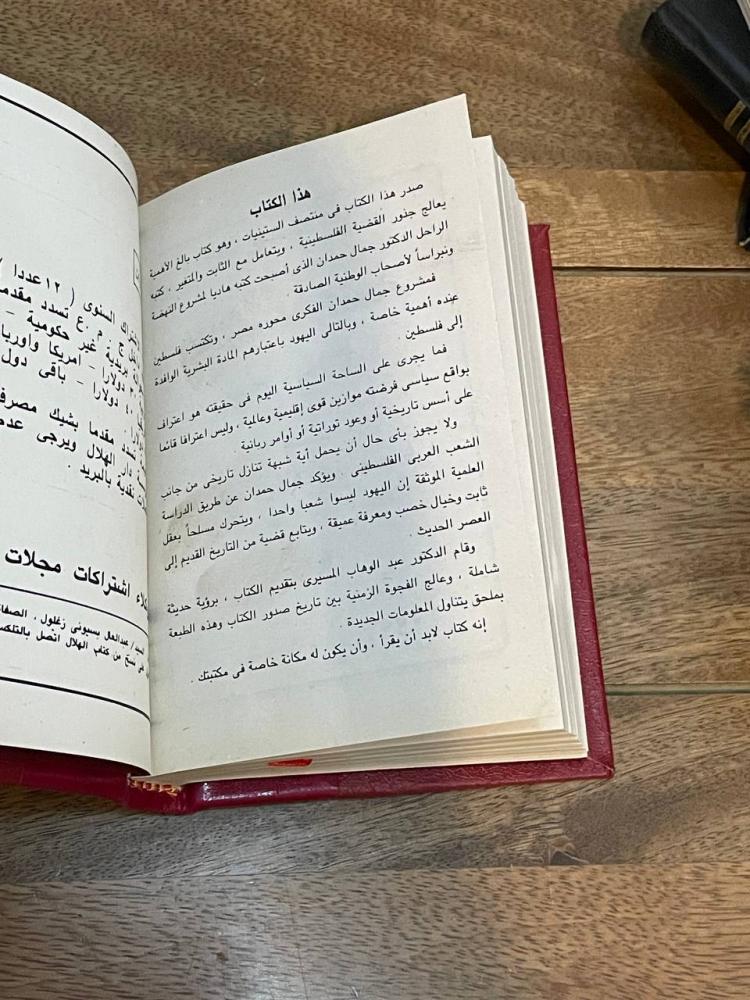 هذا الكتاب
صدر هذا الكتاب فى منتصف الستينيات ، وهو كتاب بالغ الأهمية
يعالج جذور القضية الفلسطينية ، ويتعامل مع الثابت والمتغير ، كتبه
الراحل الدكتور جمال حمدان الذى أصبحت كتبه هاديا لمشروع النهضة
ونبراساً لأصحاب الوطنية الصادقة .
فمشروع جمال حمدان الفكرى محوره مصر ، وتكتسب فلسطين
عنده أهمية خاصة ، وبالتالى اليهود باعتبارهم المادة البشرية الوافدة
إلى فلسطين .
فما يجرى على الساحة السياسية اليوم فى حقيقته هو اعتراف
بواقع سياسى فرضته موازين قوى إقليمية وعالمية ، وليس اعترافا قائما
على أسس تاريخية أو وعود توراتية أو أوامر ربانية .
ولا يجوز بأى حال أن يحمل أية شبهة تنازل تاريخى من جانب
الشعب العربى الفلسطينى . ويؤكد جمال حمدان عن طريق الدراسة
العلمية الموثقة إن اليهود ليسوا شعبا واحدا ، ويتحرك مسلحاً بعقل
ثابت وخيال خصب ومعرفة عميقة ، ويتابع قضية من التاريخ القديم إلى
العصر الحديث .
وقام الدكتور عبد الوهاب المسيرى بتقديم الكتاب ، برؤية حديثة
شاملة ، وعالج الفجوة الزمنية بين تاريخ صدور الكتاب وهذه الطبعة
بملحق يتناول المعلومات الجديدة .
إنه كتاب لابد أن يقرأ ، وأن يكون له مكانة خاصة فى مكتبتك .
السنوى ( ١٢ عددا )
ج . م . ع تسدد مقدما
بريدية غير حكومية -
دولارا - امريكا واوربا
دولارا - باقى دول
تسدد مقدما بشيك مصرفى
دار الهلال ويرجى عدم
نقدية بالبريد .
اشتراكات مجلات
السيد / عبدالعال بسيونى زغلول ، الصفاة
نسخ من كتاب الهلال اتصل بالتلكس